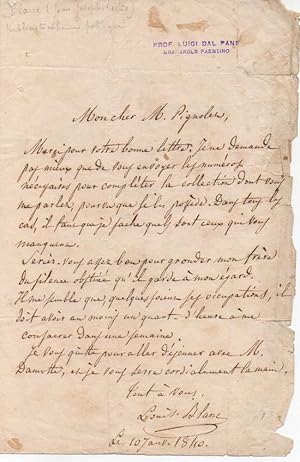 PROF. LUIGI DAL PANE
GRANAROLO FAENTINO
Mon cher M. Pignolet,
Merci pour votre bonne lettre. Je ne demande
pas mieux que de vous envoyer les numéros
nécessaires pour compléter la collection dont vous
me parlez, pourvu que je les possède. Dans tous les
cas, il faut que je sache quels sont ceux qui vous
manquent.
Seriez-vous assez bon pour gronder mon frère
du silence obstiné qu'il garde à mon égard.
Il me semble que quelques soient ses occupations, il
doit avoir au moins un quart d'heure à me
consacrer dans une semaine.
Je vous quitte pour aller déjeuner avec M.
et je vous serre cordialement la main.
Tout à vous.
Louis Blanc
Le 10 janv. 1840.